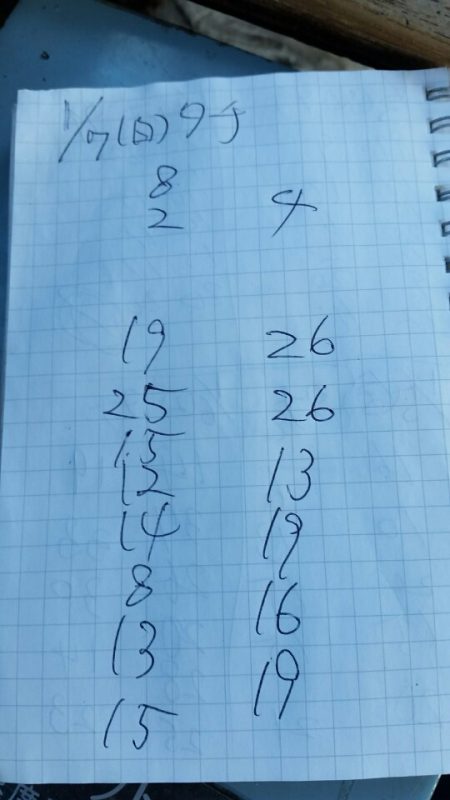 1/7(日) 9J
8
2 4
19 26
25 26
15
12 13
14 19
8 16
13 19
15